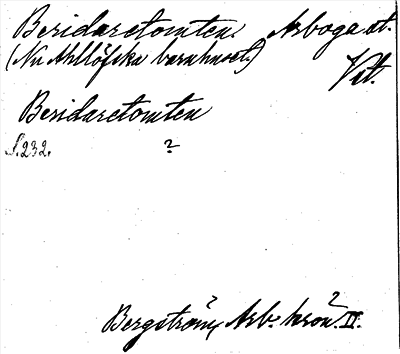 Beridaretomten. Arboga st.
(Nu Ahllöfska barnhuset.) Vstl.
Beridaretomten
S. 232. ?
Bergström, Arb. krön. II.